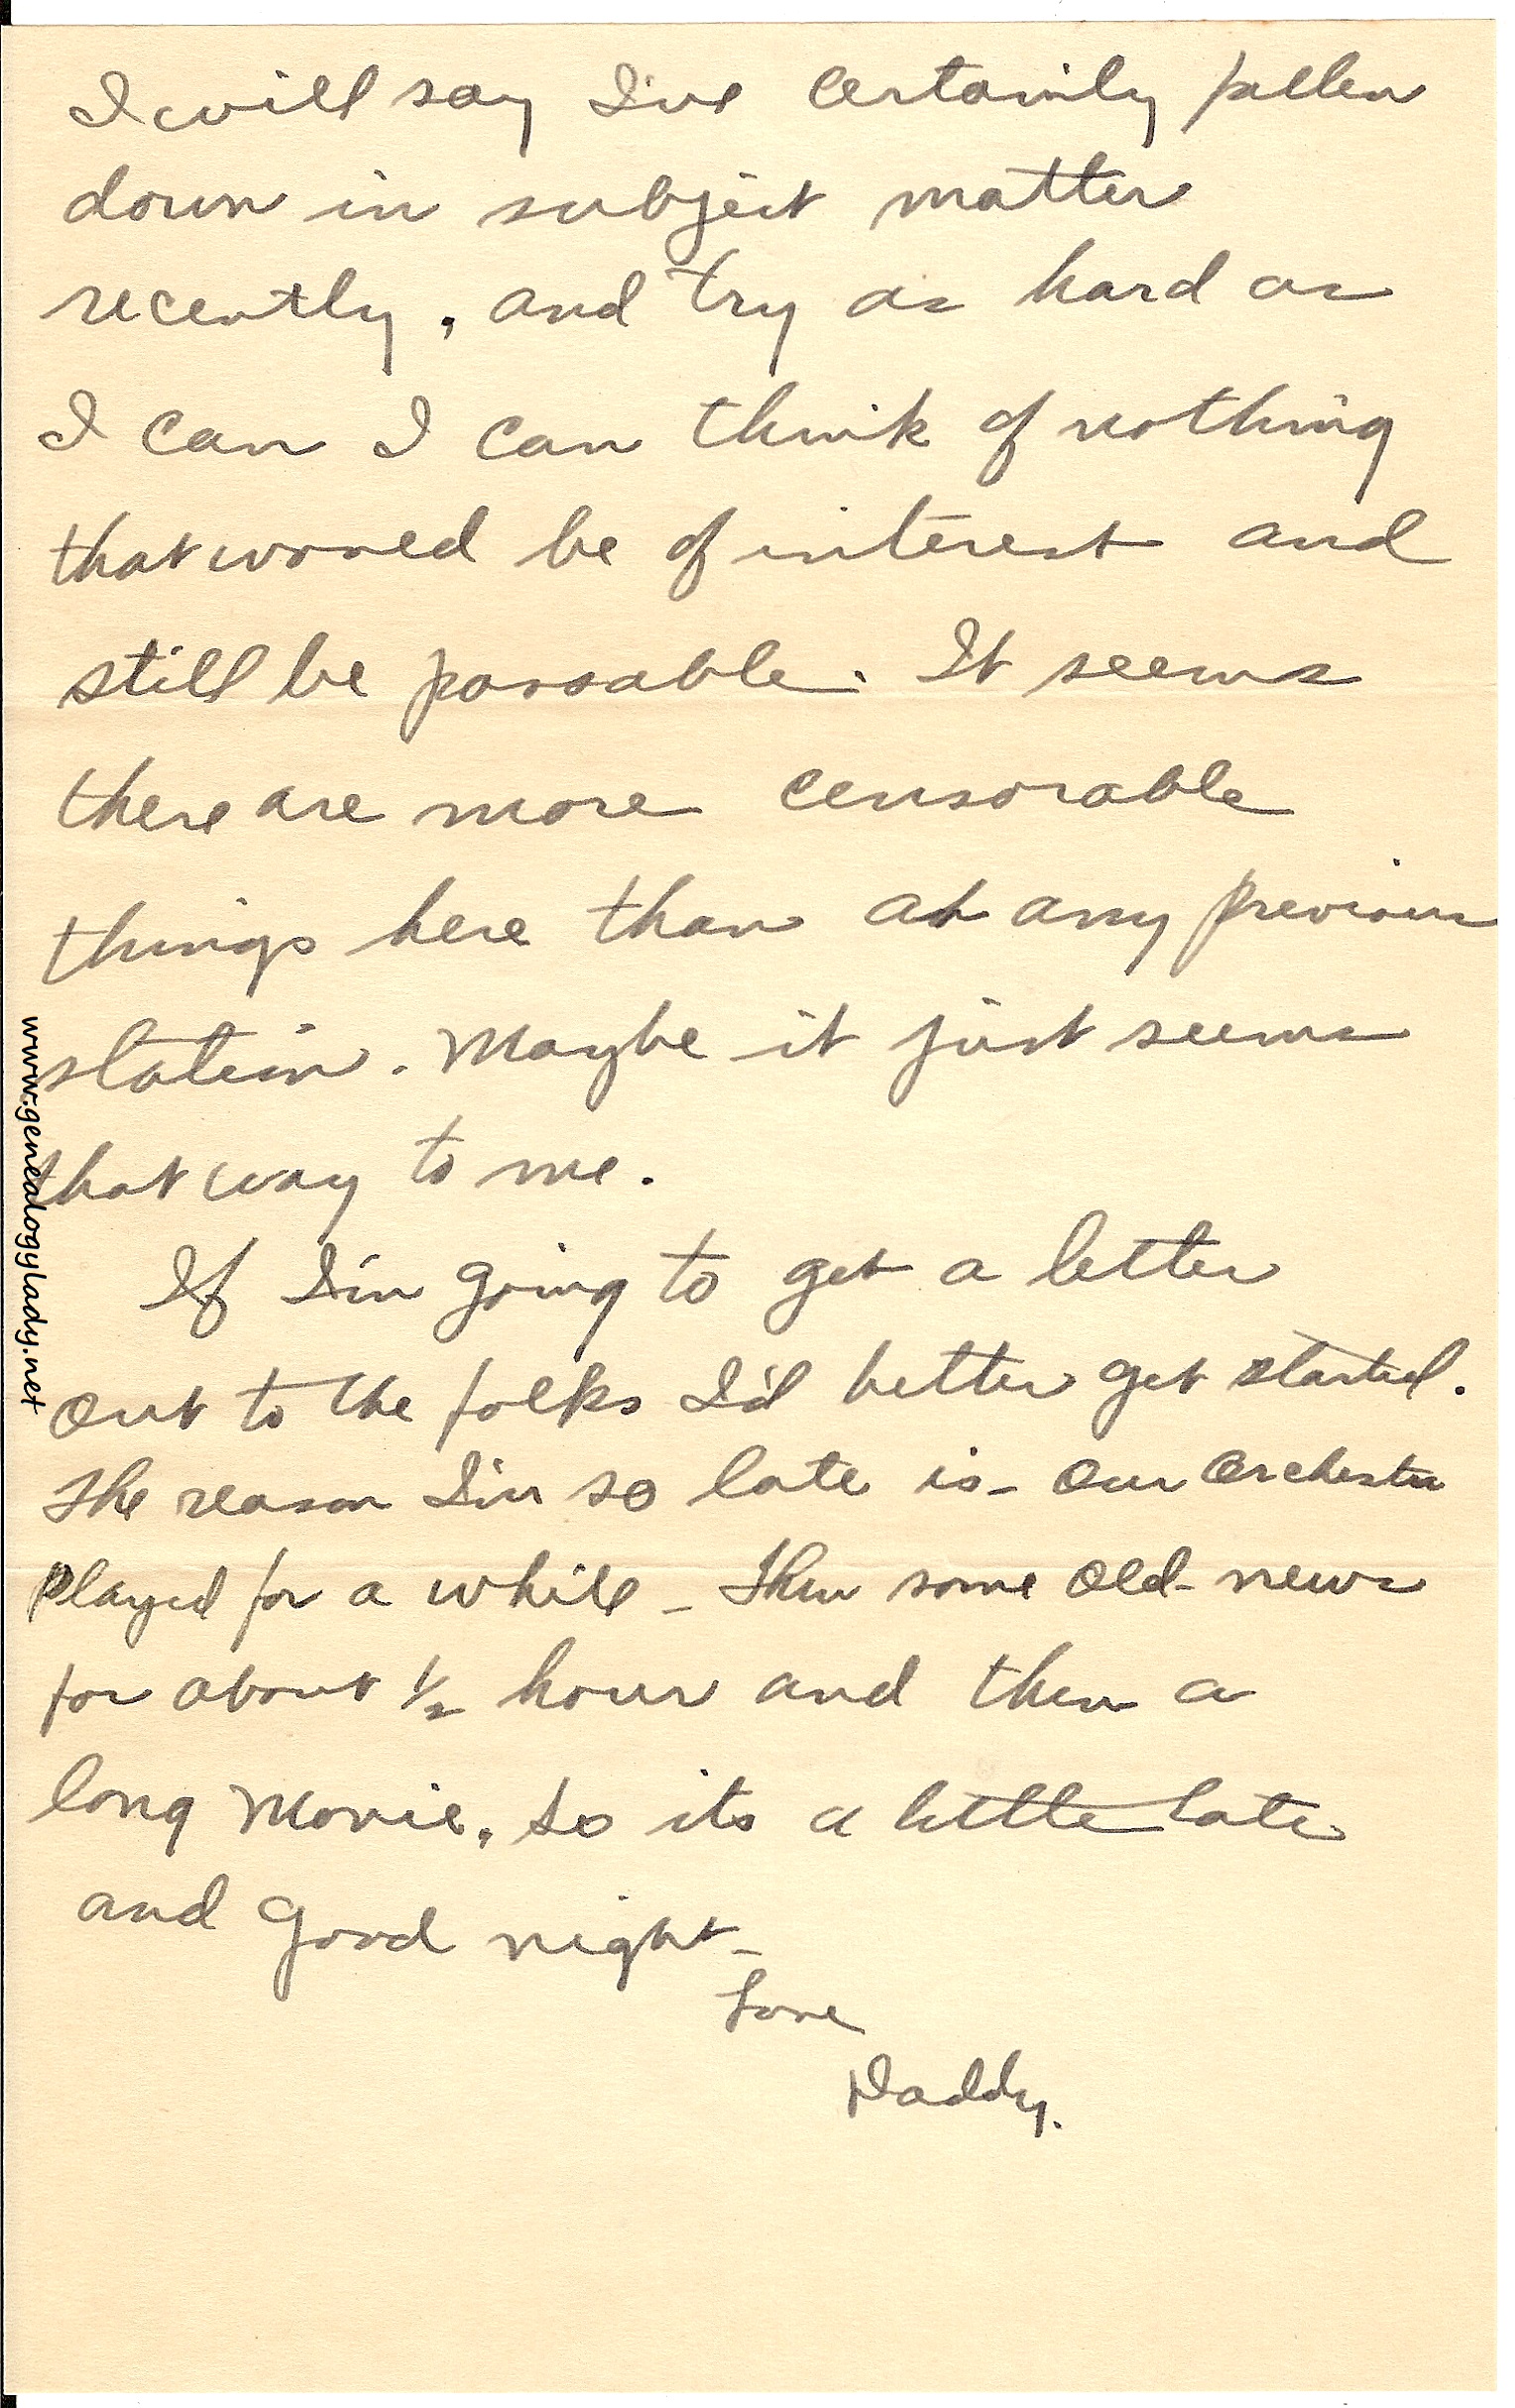 I will say I've certainly fallen
down in subject matter
recently, and try as hard as
I can I can think of nothing
that would be of interest and
still be passable. It seems
there are more censorable
things here than at any previous
station. Maybe it just seems
that way to me.
If I'm going to get a letter
out to the folks I'd better get started.
The reason I'm so late is - our orchestra
played for a while - then some old news
for about 1/2 hour and then a
long movie. So its a little late
and good night -
Love
Daddy.
www.genealogylady.net